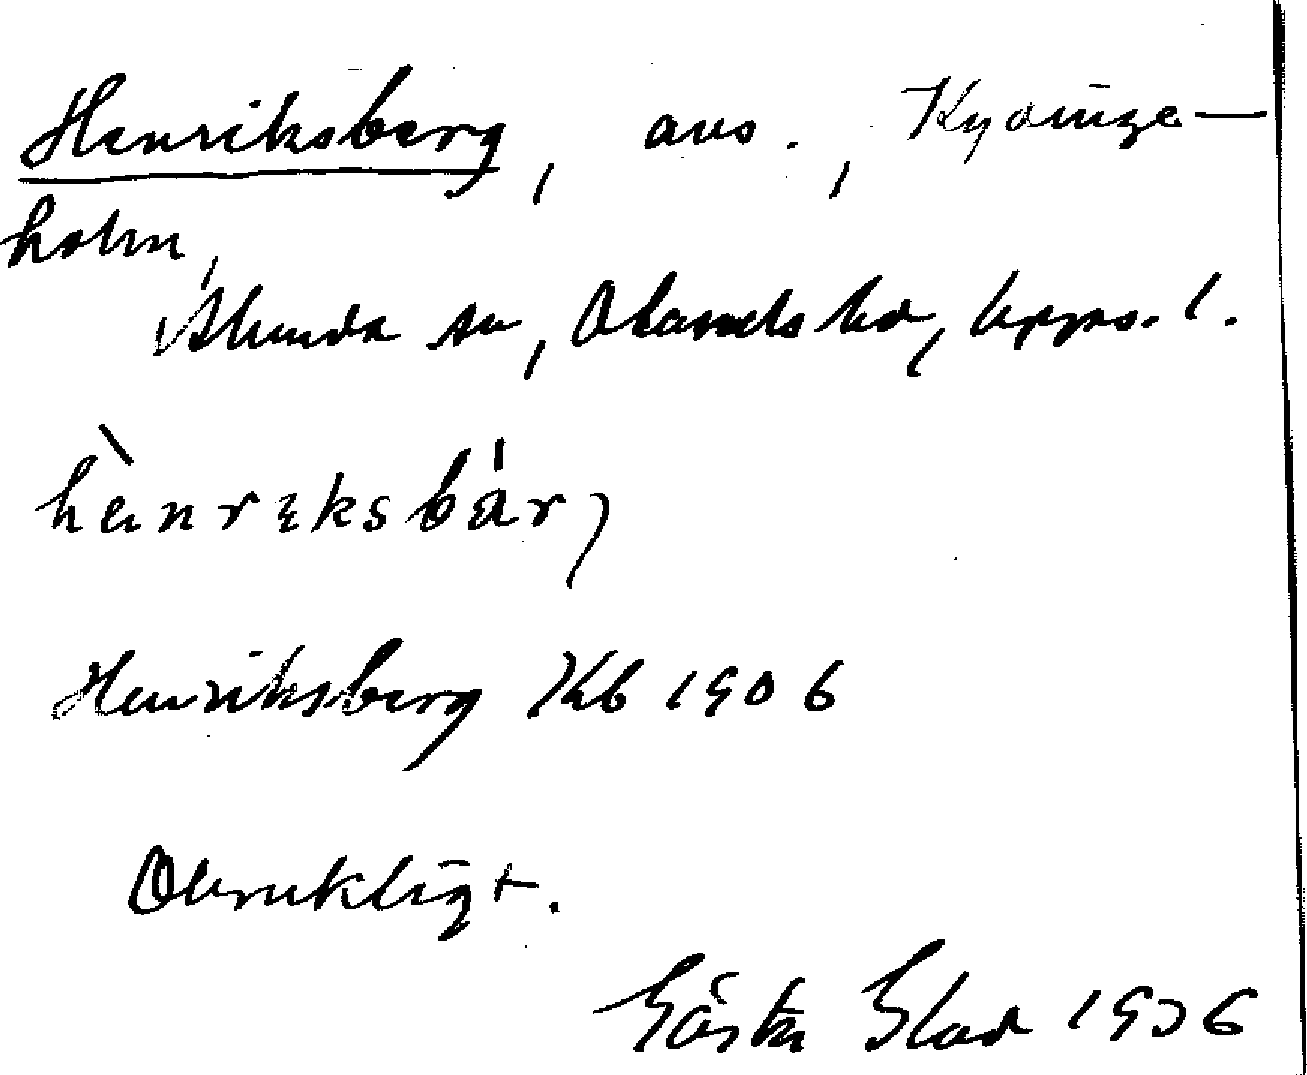 Henriksberg, avs., Kydinge-
holm,
Alunda sn, Olands hd, Upps. l.
hènrɩksbár,
Henriksberg Kb 1906
Obrukligt.
Gösta Blad 1936